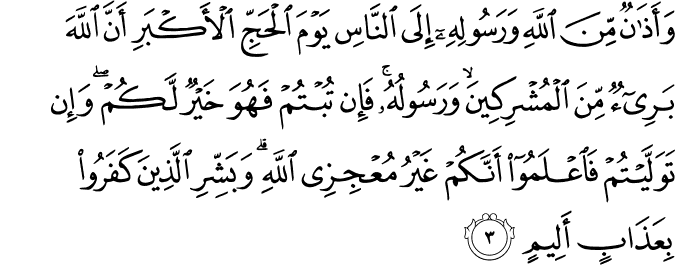 وَأَذَٰنٌ مِّنَ ٱللَّهِ وَرَسُولِهِۦٓ إِلَى ٱلنَّاسِ يَوْمَ ٱلْحَجِّ ٱلْأَكْبَرِ أَنَّ ٱللَّهَ
بَرِىٓءٌ مِّنَ ٱلْمُشْرِكِينَ ۙ وَرَسُولُهُۥ ۚ فَإِن تُبْتُمْ فَهُوَ خَيْرٌ لَّكُمْ ۖ وَإِن
تَوَلَّيْتُمْ فَٱعْلَمُوٓا۟ أَنَّكُمْ غَيْرُ مُعْجِزِى ٱللَّهِ ۗ وَبَشِّرِ ٱلَّذِينَ كَفَرُوا۟
بِعَذَابٍ أَلِيمٍ ٣